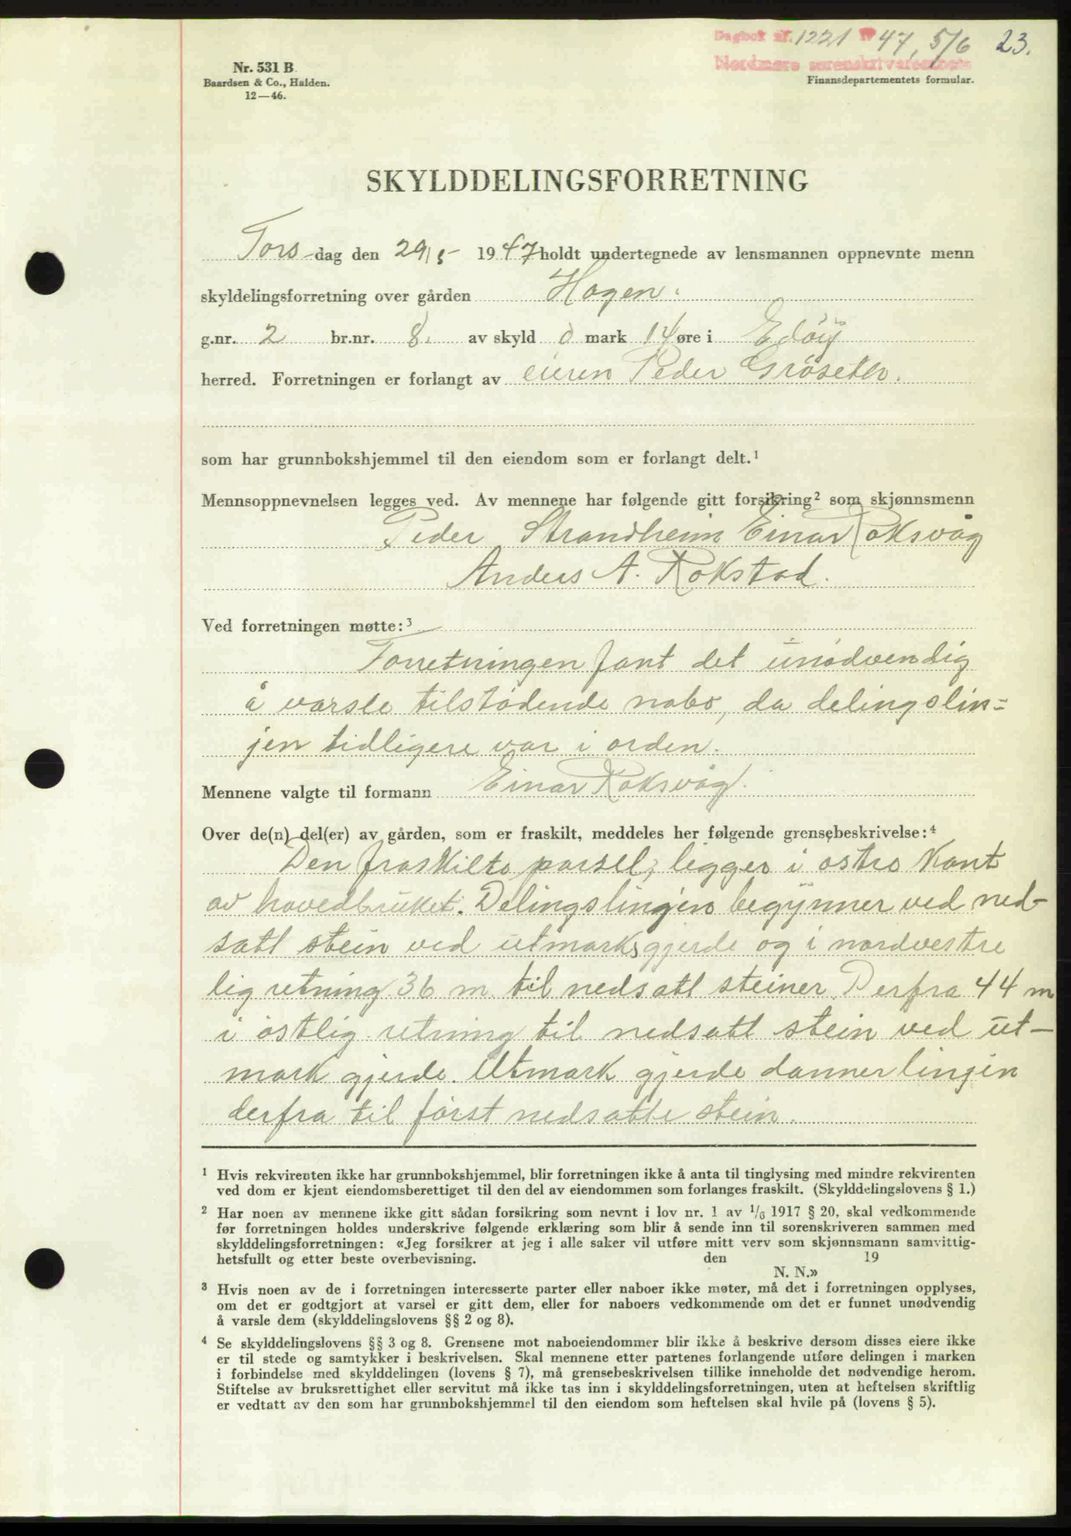 Dagbok nr. 1221 19 47, 5/6 23.
Nordmøre sorenskriverembete
Nr. 531 B
Baardsen & Co., Halden.
12—46.
Finansdepartementets formular.
SKYLDDELINGSFORRETNING
Tors-dag den 29/5- 1947 holdt undertegnede av lensmannen oppnevnte menn
skyldelingsforretning over gården Hagen.
g.nr. 2 br.nr. 8. av skyld 0 mark 14 øre i Edøy
herred. Forretningen er forlangt av eieren Peder Gröseth.
som har grunnbokshjemmel til den eiendom som er forlangt delt.¹
Mennsoppnevnelsen legges ved. Av mennene har følgende gitt forsikring² som skjønnsmenn
Peder Strandheim Einar Roksvåg
Anders A. Rokstad.
Ved forretningen møtte:³
Forretningen fant det unödvendig
å varsle tilstödende nabo, da delingslin=
jen tidligere var i orden.
Mennene valgte til formann Einar Roksvåg.
Over de(n) del(er) av gården, som er fraskilt, meddeles her følgende grensebeskrivelse:⁴
Den fraskilte parsel, ligger i östre Kant
av hovedbruket. Delingslingen begynner ved ned-
satt stein ved utmarksgjerde og i nordvestre
lig retning 36 m til nedsatt steiner. Derfra 44 m
i östlig retning til nedsatt stein ved ut-
mark gjerde. Utmark gjerde danner linjen
derfra til först nedsatte stein.
¹ Hvis rekvirenten ikke har grunnbokshjemmel, blir forretningen ikke å anta til tinglysing med mindre rekvirenten
ved dom er kjent eiendomsberettiget til den del av eiendommen som forlanges fraskilt. (Skylddelingslovens § 1.)
² Har noen av mennene ikke gitt sådan forsikring som nevnt i lov nr. 1 av 1/6 1917 § 20, skal vedkommende
før forretningen holdes underskrive følgende erklæring som blir å sende inn til sorenskriveren sammen med
skylddelingsforretningen: «Jeg forsikrer at jeg i alle saker vil utføre mitt verv som skjønnsmann samvittig-
hetsfullt og etter beste overbevisning. den 19
N. N.»
³ Hvis noen av de i forretningen interesserte parter eller naboer ikke møter, må det i forretningen opplyses,
om det er godtgjort at varsel er gitt dem, eller for naboers vedkommende om det er funnet unødvendig
å varsle dem (skylddelingslovens §§ 2 og 8).
⁴ Se skylddelingslovens §§ 3 og 8. Grensene mot naboeiendommer blir ikke å beskrive dersom disses eiere ikke
er til stede og samtykker i beskrivelsen. Skal mennene etter partenes forlangende utføre delingen i marken
i forbindelse med skylddelingen (lovens § 7), må grensebeskrivelsen tillike inneholde det nødvendige herom.
Stiftelse av bruksrettighet eller servitut må ikke tas inn i skylddelingsforretningen, uten at heftelsen skriftlig
er vedtatt av den som har grunnbokshjemmel til den eiendom som heftelsen skal hvile på (lovens § 5).